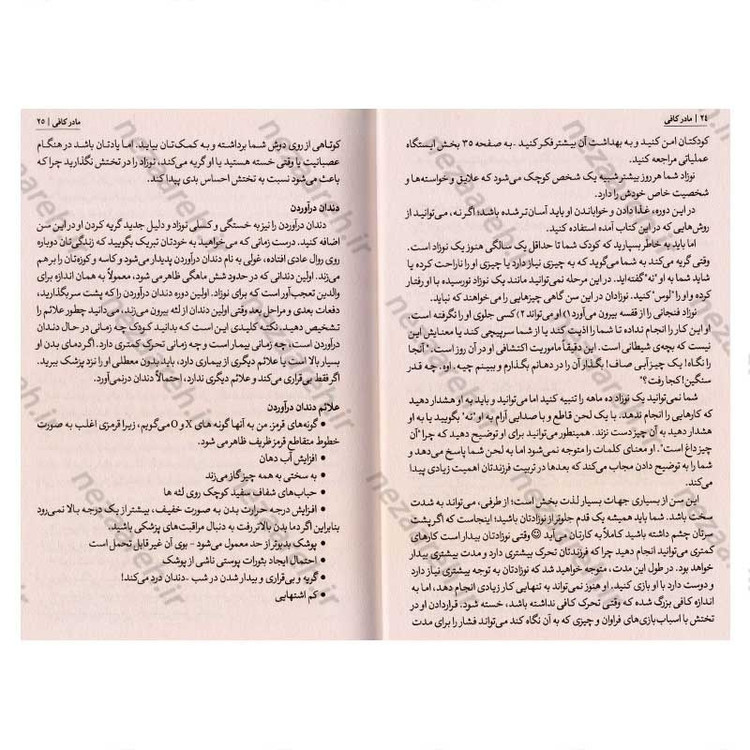 ۲۴ | مادر کافی
کودکتان امن کنید و به بهداشت آن بیشتر فکر کنید -به صفحه ۳۵ بخش ایستگاه
عملیاتی مراجعه کنید.
نوزاد شما هر روز بیشتر شبیه یک شخص کوچک می‌شود که علایق و خواسته‌ها و
شخصیت خاص خودش را دارد.
در این دوره، غذا دادن و خواباندن او باید آسان‌تر شده باشد؛ اگر نه، می‌توانید از
روش‌هایی که در این کتاب آمده استفاده کنید.
اما باید به خاطر بسپارید که کودک شما تا حداقل یک سالگی هنوز یک نوزاد است.
وقتی گریه می‌کند به شما می‌گوید که به چیزی نیاز دارد یا چیزی او را ناراحت کرده یا
شاید شما به او "نه" گفته‌اید. در این مرحله نمی‌توانید مانند یک نوزاد نورسیده با او رفتار
کرده و او را "لوس" کنید. نوزادان در این سن گاهی چیزهایی را می‌خواهند که نباید.
نوزاد فنجانی را از قفسه بیرون می‌آورد ۱) او می‌تواند ۲) کسی جلوی او را نگرفته است.
او این کار را انجام نداده تا شما را اذیت کند یا از شما سرپیچی کند یا معنایش این
نیست که بچه‌ی شیطانی است. این دقیقاً ماموریت اکتشافی او در آن روز است: "آنجا
را نگاه! یک چیز آبی صاف! بگذار آن را در دهانم بگذارم و ببینم چیه. اوه. چه قدر
سنگین! کجا رفت؟"
شما نمی‌توانید یک نوزاد ده ماهه را تنبیه کنید اما می‌توانید و باید به او هشدار دهید
که کارهایی را انجام ندهد. با یک لحن قاطع و با صدایی آرام به او "نه" بگویید یا به او
هشدار دهید به آن چیز دست نزند. همینطور می‌توانید برای او توضیح دهید که چرا "آن
چیز داغ است". او معنای کلمات را متوجه نمی‌شود اما به لحن شما پاسخ می‌دهد و
شما را به توضیح دادن مجاب می‌کند که بعدها در تربیت فرزندتان اهمیت زیادی پیدا
می‌کند.
این سن از بسیاری جهات بسیار لذت بخش است؛ از طرفی، می‌تواند به شدت
سخت باشد. شما باید همیشه یک قدم جلوتر از نوزادتان باشید؛ اینجاست که اگر پشت
سرتان چشم داشته باشید کاملاً به کارتان می‌آید ☺ وقتی نوزادتان بیدار است کارهای
کمتری می‌توانید انجام دهید چرا که فرزندتان تحرک بیشتری دارد و مدت بیشتری بیدار
خواهد بود. در طول این مدت، متوجه خواهید شد که نوزادتان به توجه بیشتری نیاز دارد
و دوست دارد با او بازی کنید. او هنوز نمی‌تواند به تنهایی کار زیادی انجام دهد، اما به
اندازه کافی بزرگ شده که وقتی تحرک کافی نداشته باشد، خسته شود. قراردادن او در
تختش با اسباب‌بازی‌های فراوان و چیزی که به آن نگاه کند می‌تواند فشار را برای مدت
مادر کافی | ۲۵
کوتاهی از روی دوش شما برداشته و به کمک‌تان بیاید. اما یادتان باشد در هنگام
عصبانیت یا وقتی خسته هستید یا او گریه می‌کند، نوزاد را در تختش نگذارید چرا که
باعث می‌شود نسبت به تختش احساس بدی پیدا کند.
دندان درآوردن
دندان درآوردن را نیز به خستگی و کسلی نوزاد و دلیل جدید گریه کردن او در این سن
اضافه کنید. درست زمانی که می‌خواهید به خودتان تبریک بگویید که زندگی‌تان دوباره
روی روال عادی افتاده، غولی به نام دندان درآوردن پدیدار می‌شود و کاسه و کوزه‌تان را بر هم
می‌زند. اولین دندانی که در حدود شش ماهگی ظاهر می‌شود، معمولاً به همان اندازه برای
والدین تعجب‌آور است که برای نوزاد. اولین دوره دندان درآوردن را که پشت سر بگذارید،
دفعات بعدی و مراحل بعد وقتی اولین دندان از لثه بیرون می‌زند، می‌دانید چطور علائم را
تشخیص دهید. نکته کلیدی این است که بدانید کودک چه زمانی در حال دندان
درآوردن است، چه زمانی بیمار است و چه زمانی تحرک کمتری دارد. اگر دمای بدن او
بسیار بالا است یا علائم دیگری از بیماری دارد، باید بدون معطلی او را نزد پزشک ببرید.
اگر فقط بی‌قراری می‌کند و علائم دیگری ندارد، احتمالاً دندان درنمی‌آورد.
علائم دندان درآوردن
● گونه‌های قرمز. من به آنها گونه های X و O می‌گویم، زیرا قرمزی اغلب به صورت
خطوط متقاطع قرمز ظریف ظاهر می شود.
● افزایش آب دهان
● به سختی به همه چیز گاز می‌زند
● حباب‌های شفاف سفید کوچک روی لثه ها
● افزایش درجه حرارت بدن به صورت خفیف، بیشتر از یک درجه بالا نمی‌رود
بنابراین اگر دما بدن بالاتر رفت به دنبال مراقبت‌های پزشکی باشید.
● پوشک بدبوتر از حد معمول می‌شود - بوی آن غیر قابل تحمل است
● احتمال ایجاد بثورات پوستی ناشی از پوشک
● گریه و بی‌قراری و بیدار شدن در شب -دندان درد می‌کند!
● کم اشتهایی
nezareh.ir